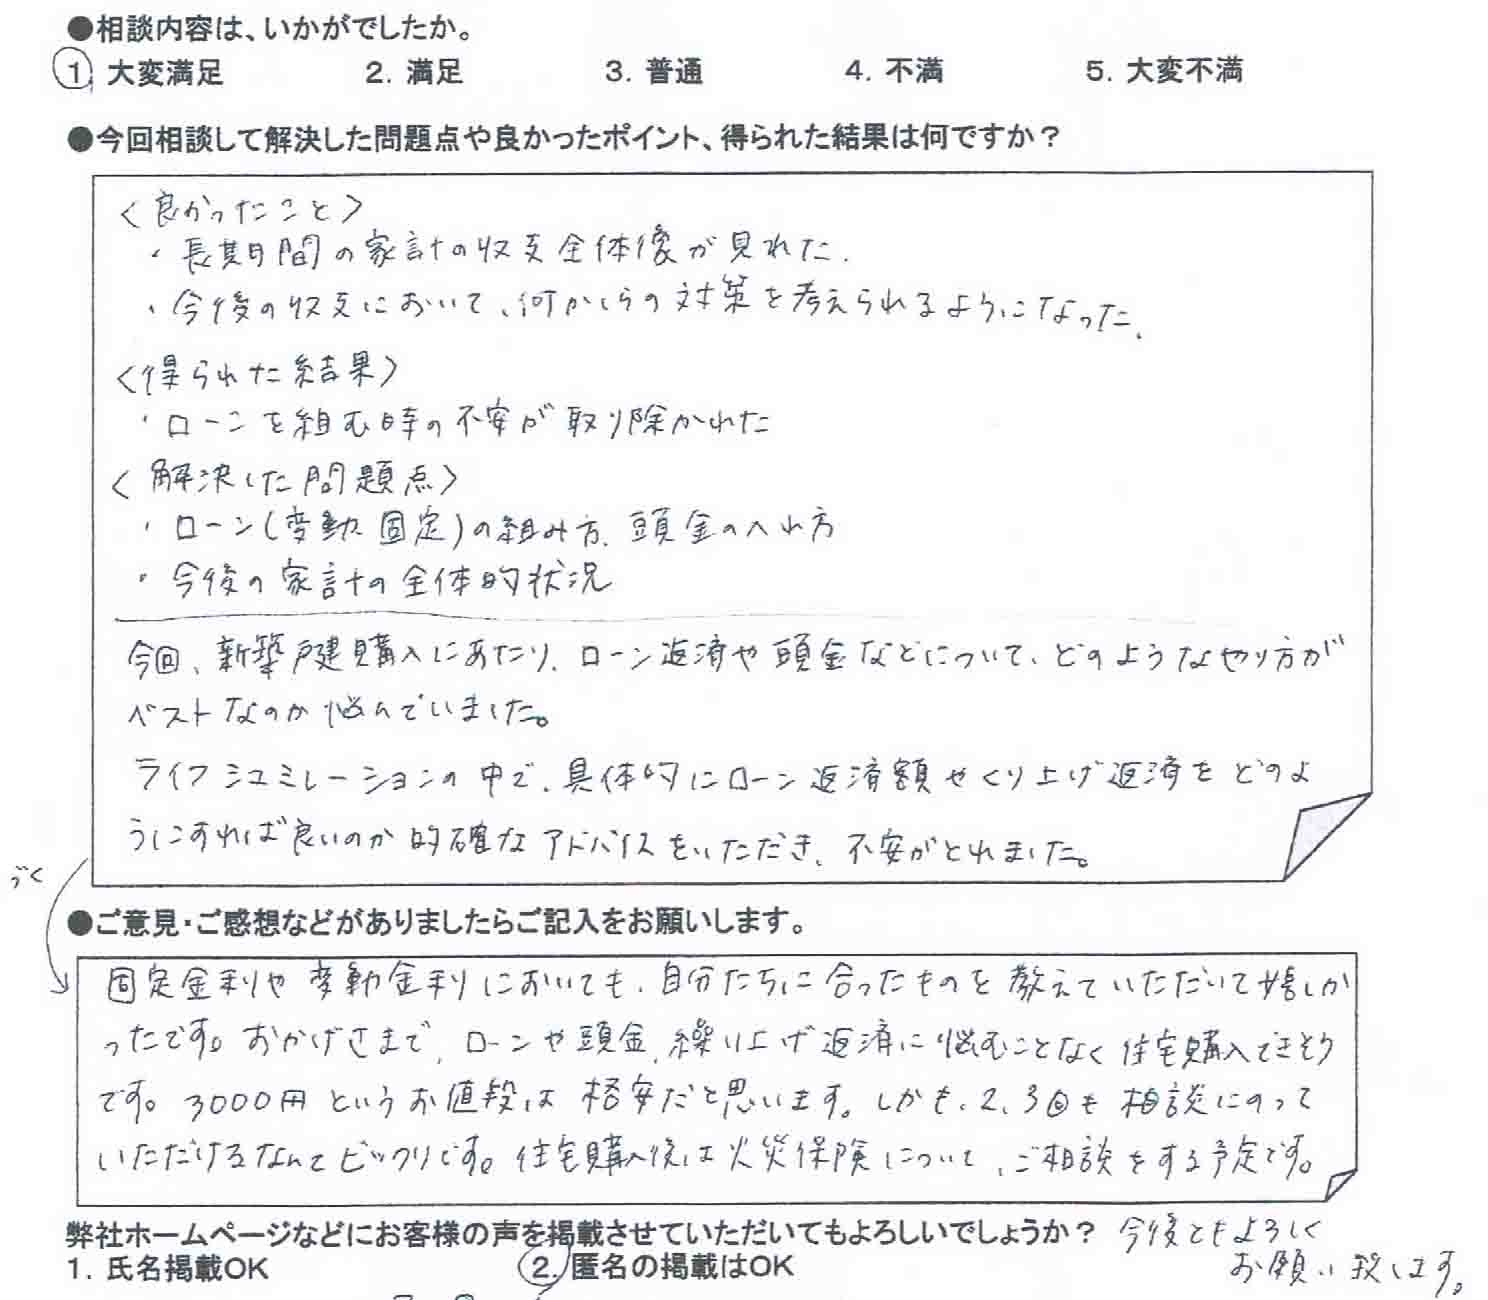 ●相談内容は、いかがでしたか。
1. 大変満足 2. 満足 3. 普通 4. 不満 5. 大変不満
●今回相談して解決した問題点や良かったポイント、得られた結果は何ですか?
<良かったこと>
・長期間の家計の収支全体像が見れた.
・今後の収支において、何かしらの対策を考えられるようになった.
<得られた結果>
・ローンを組む時の不安が取り除かれた
<解決した問題点>
・ローン(変動 固定)の組み方、頭金の入れ方
・今後の家計の全体的状況
今回、新築戸建購入にあたり、ローン返済や頭金などについて、どのようなやり方が
ベストなのか悩んでいました。
ライフシュミレーションの中で、具体的にローン返済額やくり上げ返済をどのよ
うにすれば良いのか的確なアドバイスをいただき、不安がとれました。
づく
●ご意見・ご感想などがありましたらご記入をお願いします。
固定金利や変動金利においても、自分たちに合ったものを教えていただいて嬉しか
ったです。おかげさまで、ローンや頭金、繰り上げ返済に悩むことなく住宅購入できそう
です。3000円というお値段は格安だと思います。しかも、2、3回も相談にのって
いただけるなんてビックリです。住宅購入後は火災保険について、ご相談をする予定です。
弊社ホームページなどにお客様の声を掲載させていただいてもよろしいでしょうか? 今後ともよろしく
1. 氏名掲載OK 2. 匿名の掲載はOK お願い致します。